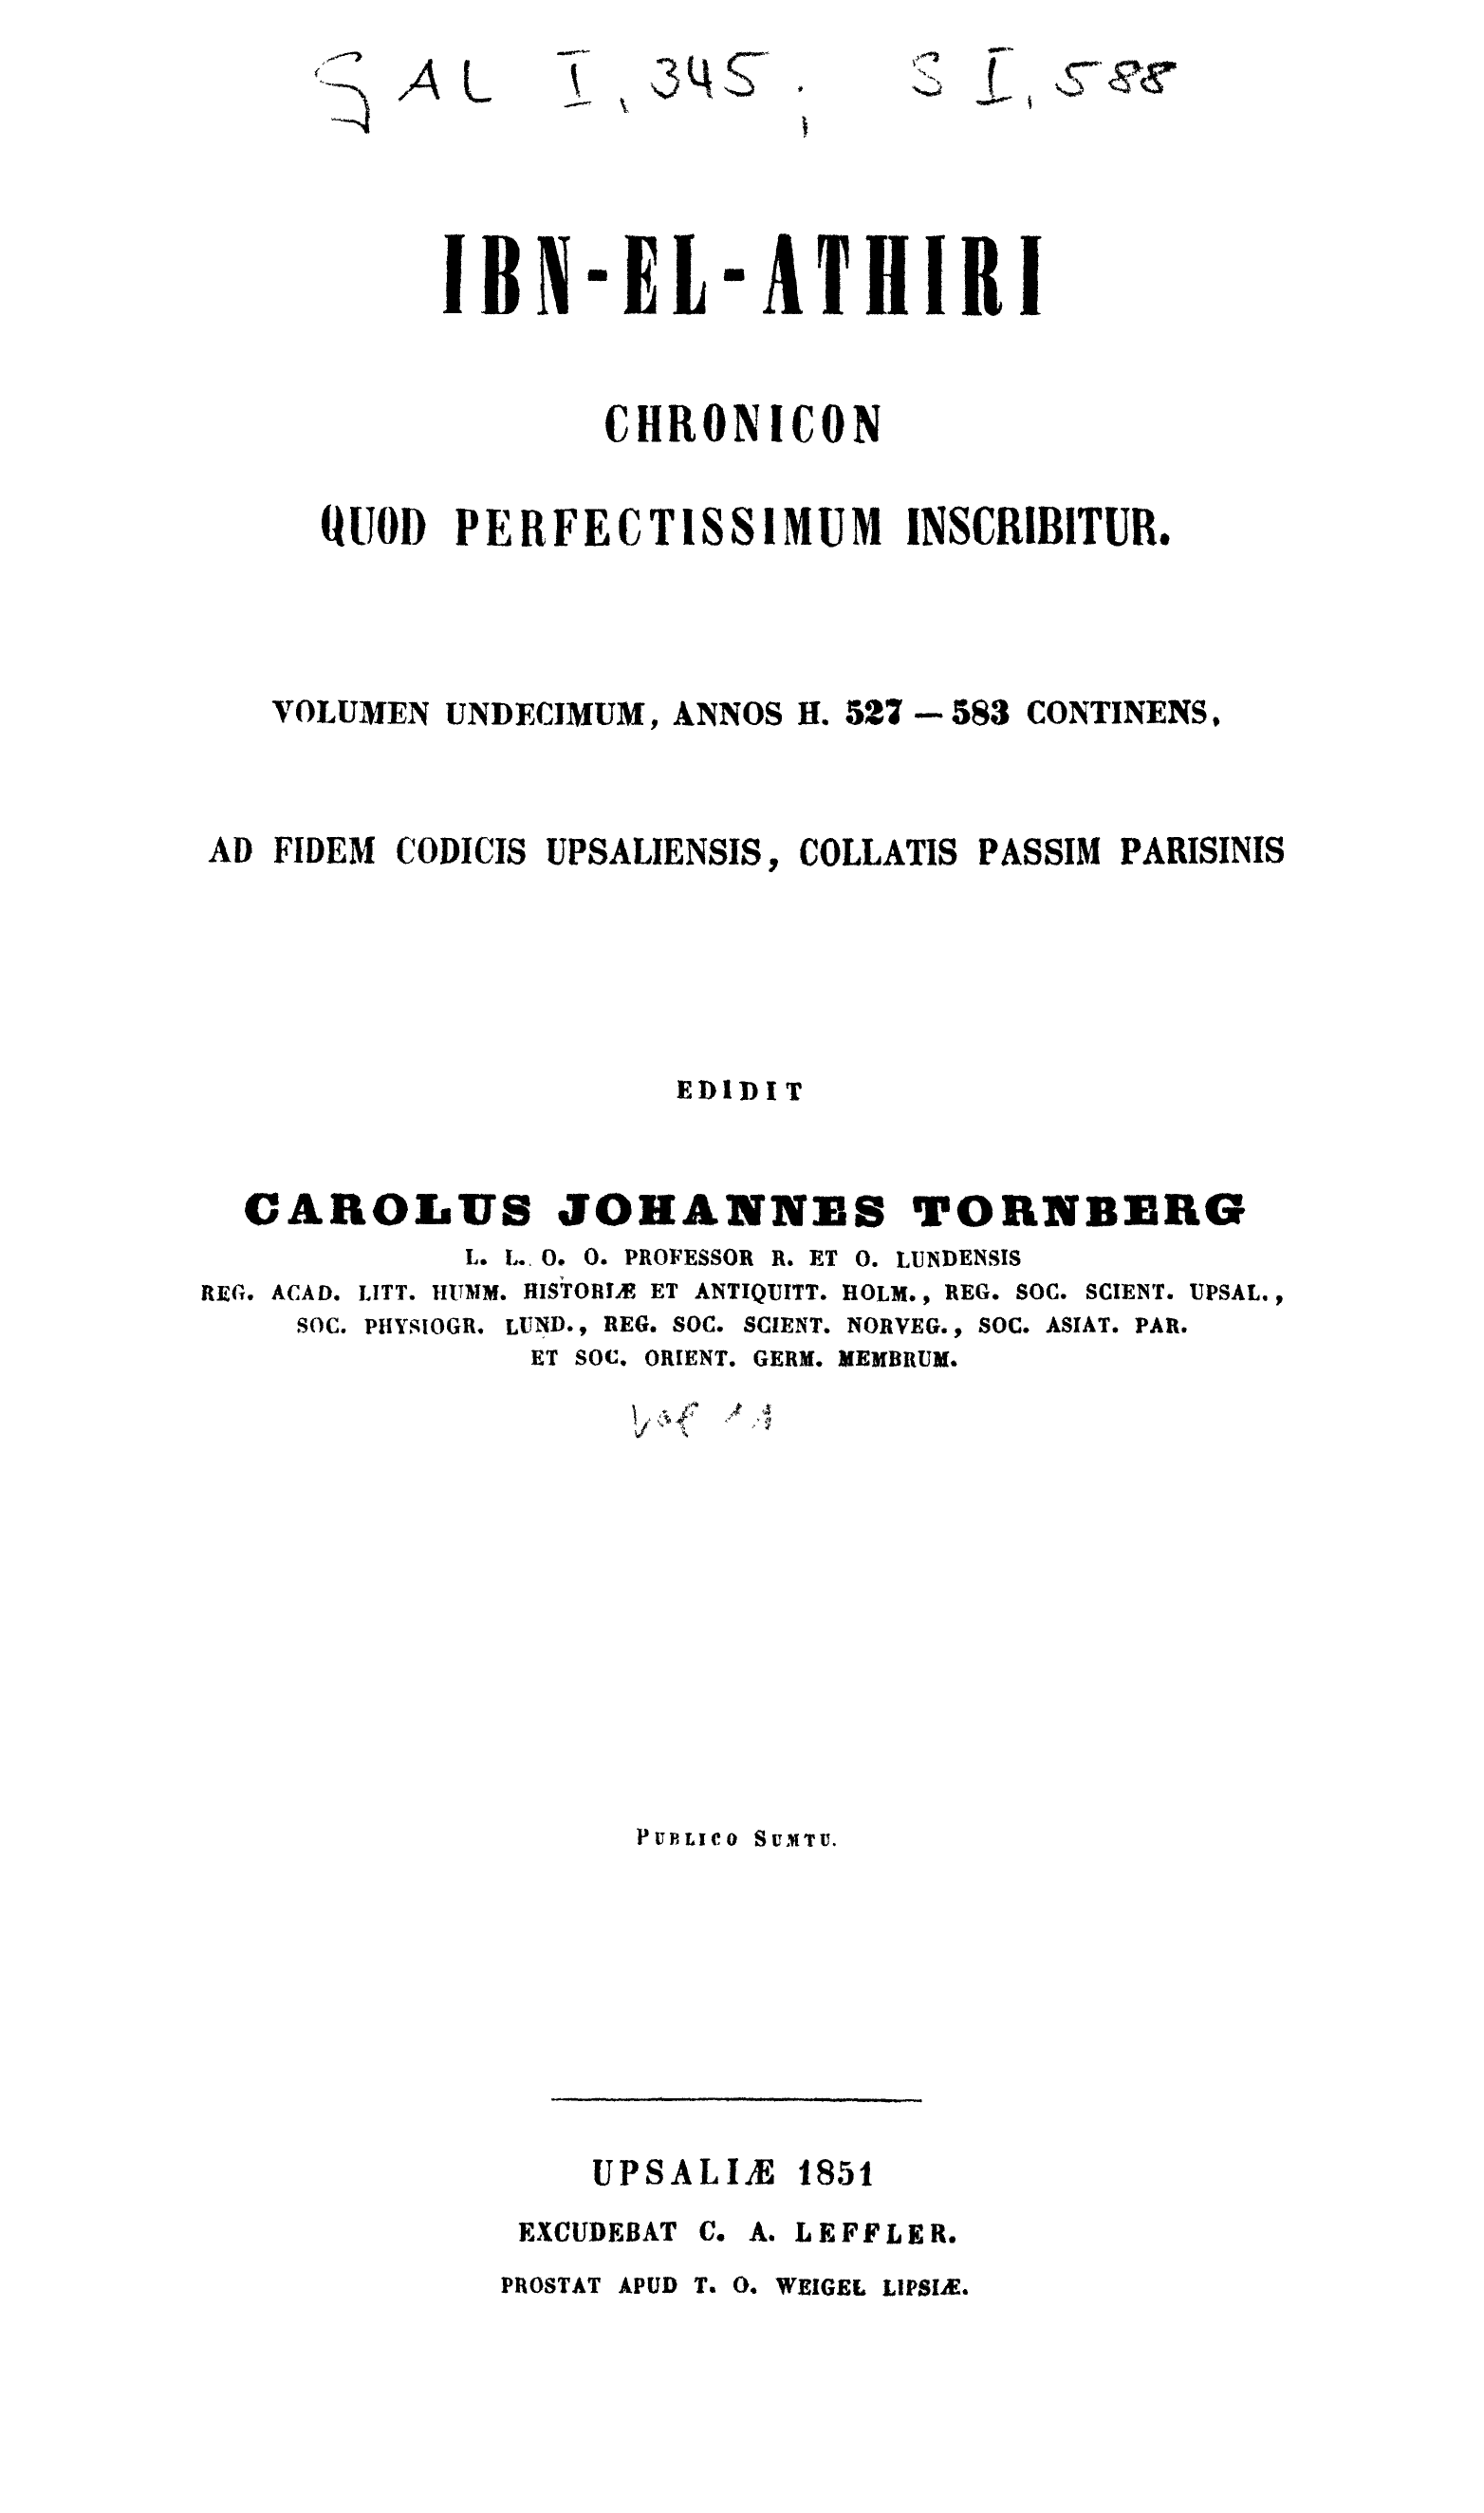 GAL I, 345; S I, 588
IBN-EL-ATHIRI
CHRONICON
QUOD PERFECTISSIMUM INSCRIBITUR.
VOLUMEN UNDECIMUM, ANNOS H. 527 — 583 CONTINENS,
AD FIDEM CODICIS UPSALIENSIS, COLLATIS PASSIM PARISINIS
EDIDIT
CAROLUS JOHANNES TORNBERG
L. L. O. O. PROFESSOR R. ET O. LUNDENSIS
REG. ACAD. LITT. HUMM. HISTORIÆ ET ANTIQUITT. HOLM., REG. SOC. SCIENT. UPSAL.,
SOC. PHYSIOGR. LUND., REG. SOC. SCIENT. NORVEG., SOC. ASIAT. PAR.
ET SOC. ORIENT. GERM. MEMBRUM.
Vol 11
PUBLICO SUMTU.
UPSALIÆ 1851
EXCUDEBAT C. A. LEFFLER.
PROSTAT APUD T. O. WEIGEL LIPSIÆ.